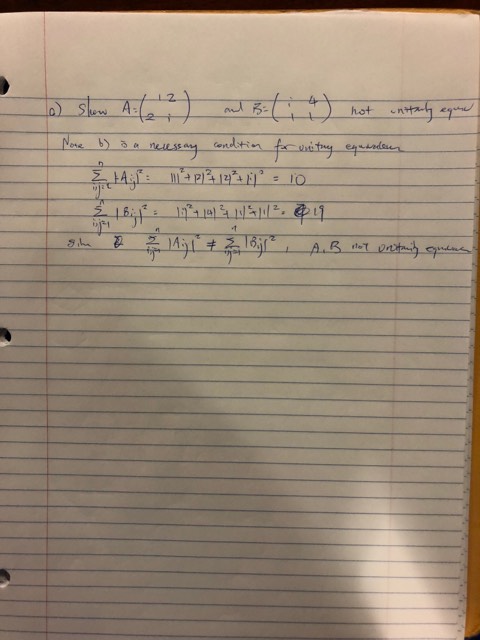 a) Show A = ( 1 2 2 i ) and B = ( i 4 1 1 ) not unitarily
Note b) is a necessary condition for unitary equivalence
∑ⁿᵢ,ⱼ₌₁ |Aᵢⱼ|² = |1|² + |2|² + |2|² + |i|² = 10
∑ⁿᵢ,ⱼ₌₁ |Bᵢⱼ|² = |i|² + |4|² + |1|² + |1|² = 19
since ∑ⁿᵢ,ⱼ₌₁ |Aᵢⱼ|² ≠ ∑ⁿᵢ,ⱼ₌₁ |Bᵢⱼ|², A, B not unitarily